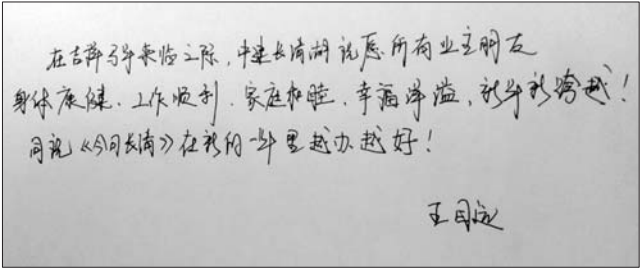 在吉祥马年来临之际，中建长清湖祝愿所有业主朋友
身体康健、工作顺利、家庭和睦、幸福洋溢，新年新跨越！
同祝《今日长清》在新的一年里越办越好！
王